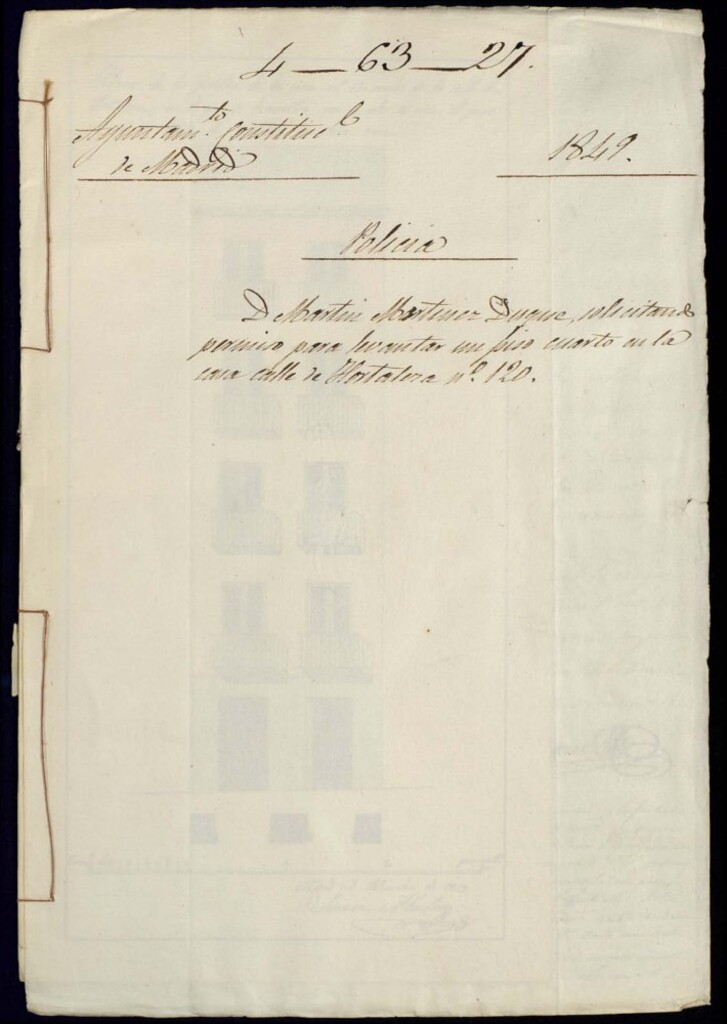 4 — 63 — 27.
Ayuntam.to Constituc.l
de Madrid
1849.
Policia
D Martin Martinez Duque, solicitando
permiso para levantar un piso cuarto en la
casa calle de Hortaleza nº. 120.